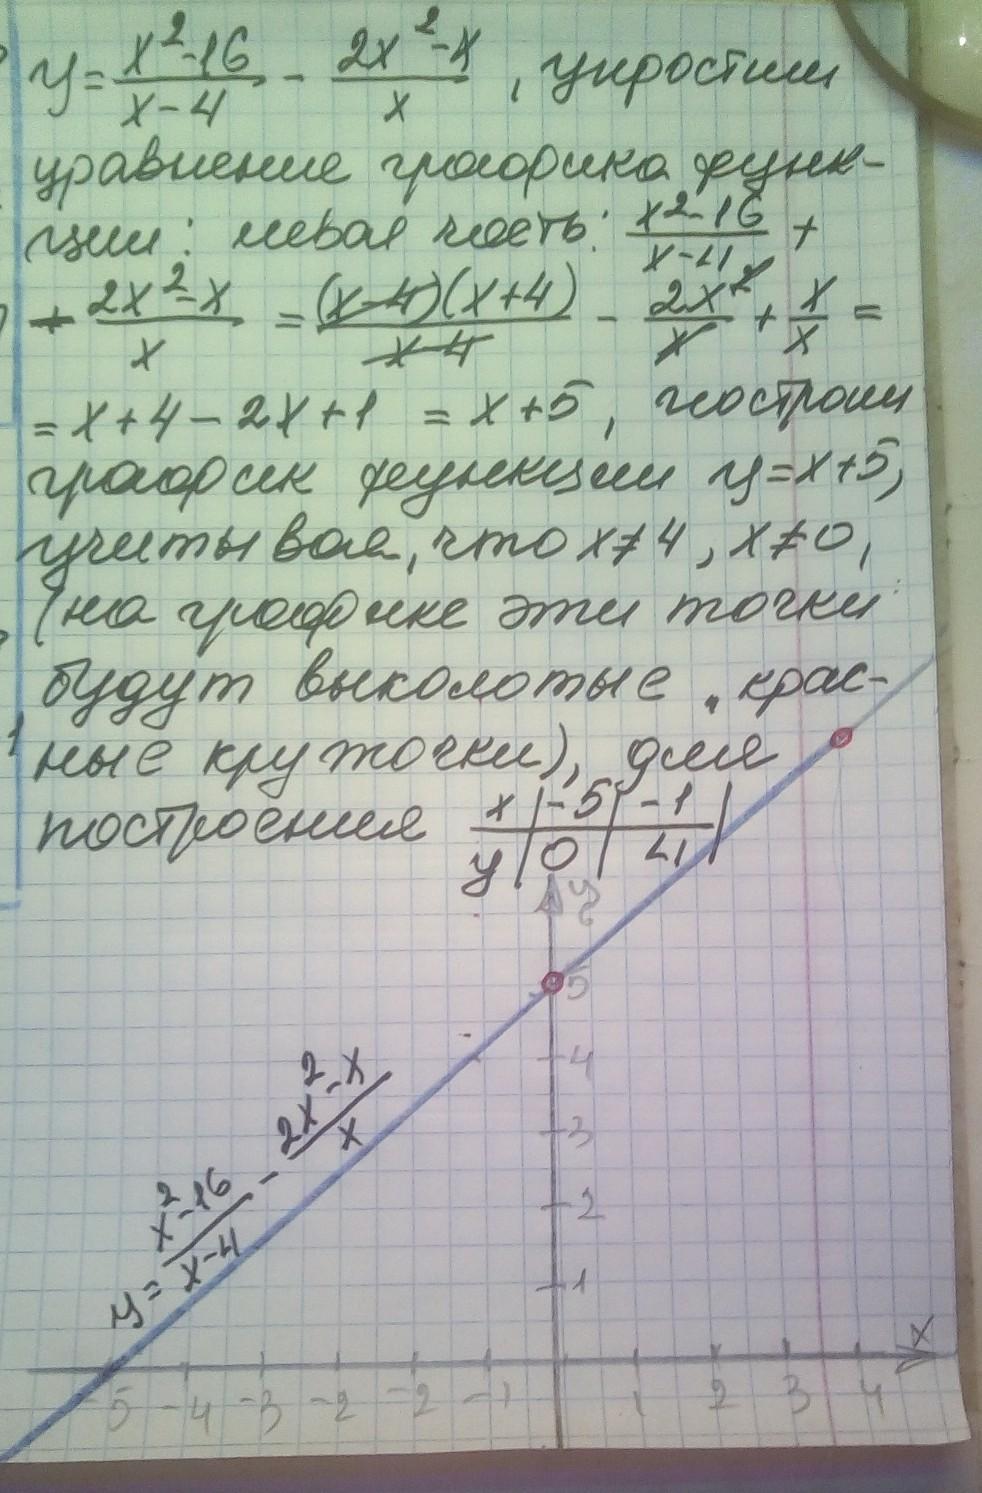 y = (x²-16)/(x-4) - (2x²-x)/x , упростим
уравнение графика функ-
ции: левая часть: (x²-16)/(x-4) +
+ (2x²-x)/x = (x-4)(x+4)/(x-4) - 2x²/x + x/x =
= x+4-2x+1 = x+5, построим
график функции y=x+5,
учитывая, что x≠4, x≠0,
(на графике эти точки
будут выколотые, крас-
ные кружочки), для
построения x | -5 | -1 |
y | 0 | 4 |
y
5
4
3
2
1
y = (x²-16)/(x-4) - (2x²-x)/x
x
-5 -4 -3 -2 -1 1 2 3 4